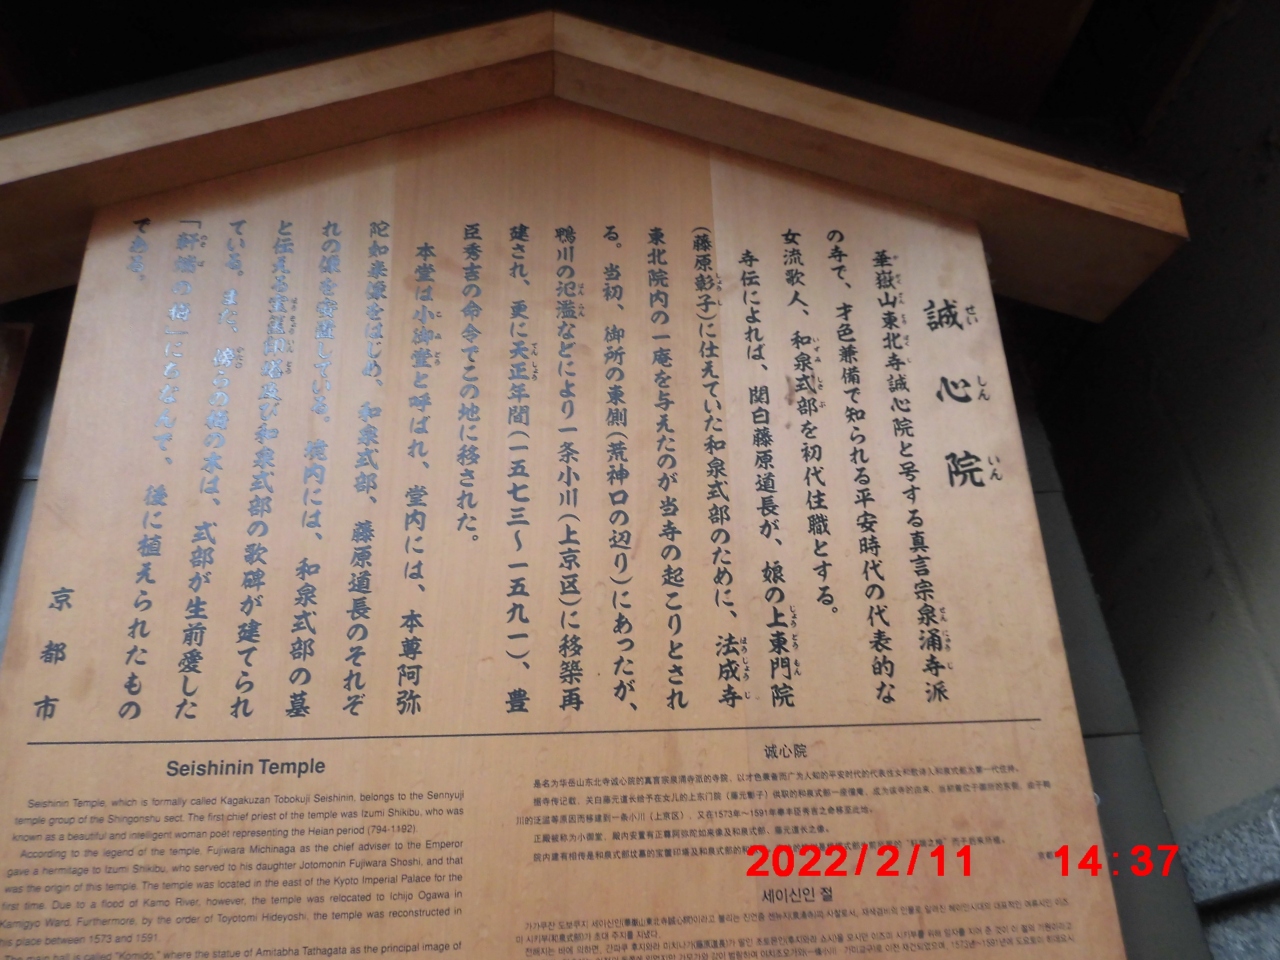 誠心院
華嶽山東北寺誠心院と号する真言宗泉涌寺派
の寺で、才色兼備で知られる平安時代の代表的な
女流歌人、和泉式部を初代住職とする。
寺伝によれば、関白藤原道長が、娘の上東門院
(藤原彰子)に仕えていた和泉式部のために、法成寺
東北院内の一庵を与えたのが当寺の起こりとされ
る。当初、御所の東側(荒神口の辺り)にあったが、
鴨川の氾濫などにより一条小川(上京区)に移築再
建され、更に天正年間(一五七三〜一五九一)、豊
臣秀吉の命令でこの地に移された。
本堂は小御堂と呼ばれ、堂内には、本尊阿弥
陀如来像をはじめ、和泉式部、藤原道長のそれぞ
れの像を安置している。境内には、和泉式部の墓
と伝える宝篋印塔及び和泉式部の歌碑が建てられ
ている。また、傍らの梅の木は、式部が生前愛した
「軒端の梅」にちなんで、後に植えられたもの
である。
京都市
Seishinin Temple
Seishinin Temple, which is formally called Kagakuzan Tobokuji Seishinin, belongs to the Sennyuji
temple group of the Shingonshu sect. The first chief priest of the temple was Izumi Shikibu, who was
known as a beautiful and intelligent woman poet representing the Heian period (794-1192).
According to the legend of the temple, Fujiwara Michinaga as the chief adviser to the Emperor
gave a hermitage to Izumi Shikibu, who served to his daughter Jotomonin Fujiwara Shoshi, and that
was the origin of this temple. The temple was located in the east of the Kyoto Imperial Palace for the
first time. Due to a flood of Kamo River, however, the temple was relocated to Ichijo Ogawa in
Kamigyo Ward. Furthermore, by the order of Toyotomi Hideyoshi, the temple was reconstructed in
his place between 1573 and 1591.
The main hall is called "Komido," where the statue of Amitabha Tathagata as the principal image of
诚心院
是名为华岳山东北寺诚心院的真言宗泉涌寺派的寺院，以才色兼备而广为人知的平安时代的代表性女和歌诗人和泉式部为第一代住持。
据寺传记载，关白藤元道长给予在女儿的上东门院（藤元彰子）供职的和泉式部一座庵，成为该寺的由来。当初曾位于御所的东侧，由于鸭
川的泛滥等原因而移建到一条小川（上京区），又在1573年～1591年奉丰臣秀吉之命移至此地。
正殿被称为小御堂，殿内安置有正尊阿弥陀如来像及和泉式部、藤元道长之像。
院内建有相传是和泉式部坟墓的宝箧印塔及和泉式部的和
세이신인 절
2022/2/11 14:37